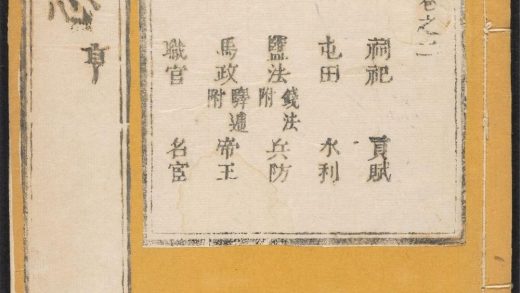 卷之
祠祀 貢賦
屯田 水利
鹽法 附錢法 兵防
馬政 附驛遞 帝王
職官 名宦
志 亨